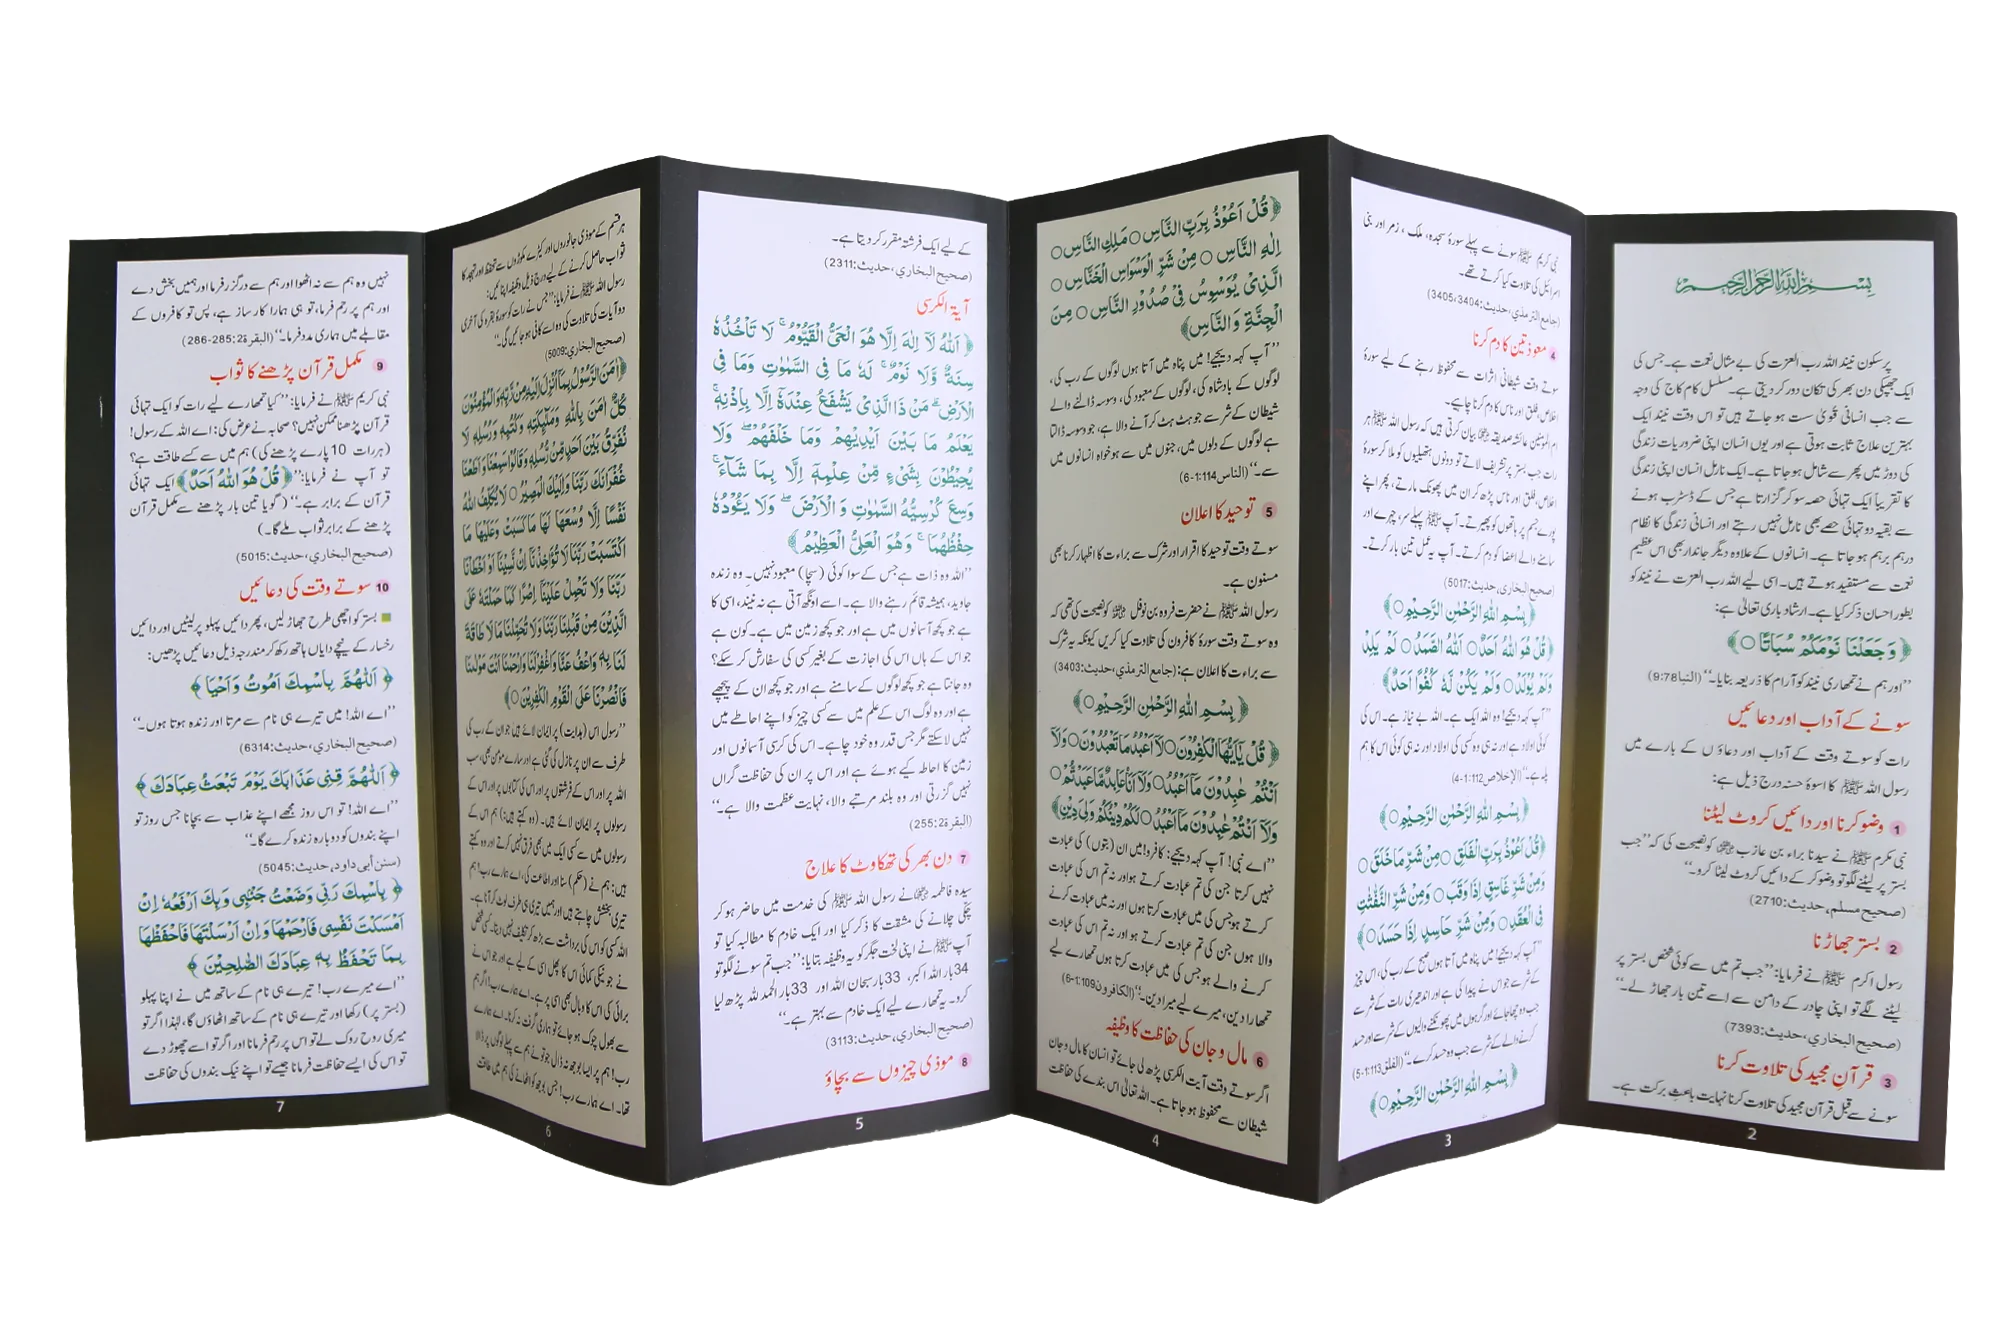 بِسْمِ اللهِ الرَّحْمٰنِ الرَّحِيْمِ
پرسکون نیند اللہ رب العزت کی بے مثال نعمت ہے۔ جس کی
ایک جھپکی دن بھر کی تکان دور کر دیتی ہے۔ مسلسل کام کاج کی وجہ
سے جب انسانی قویٰ سست ہو جاتے ہیں تو اس وقت نیند ایک
بہترین علاج ثابت ہوتی ہے اور یوں انسان اپنی ضروریات زندگی
کی دوڑ میں پھر سے شامل ہو جاتا ہے۔ ایک نارمل انسان اپنی زندگی
کا تقریباً ایک تہائی حصہ سو کر گزارتا ہے جس کے ڈسٹرب ہونے
سے بقیہ دو تہائی حصے بھی نارمل نہیں رہتے اور انسانی زندگی کا نظام
درہم برہم ہو جاتا ہے۔ انسانوں کے علاوہ دیگر جاندار بھی اس عظیم
نعمت سے مستفید ہوتے ہیں۔ اسی لیے اللہ رب العزت نے نیند کو
بطور احسان ذکر کیا ہے۔ ارشاد باری تعالیٰ ہے:
﴿وَجَعَلْنَا نَوْمَكُمْ سُبَاتًا○﴾
’’اور ہم نے تمھاری نیند کو آرام کا ذریعہ بنایا۔‘‘ (النبا 9:78)
سونے کے آداب اور دعائیں
رات کو سوتے وقت کے آداب اور دعاؤں کے بارے میں
رسول اللہ ﷺ کا اسوۂ حسنہ درج ذیل ہے:
1 وضو کرنا اور دائیں کروٹ لیٹنا
نبی مکرم ﷺ نے سیدنا براء بن عازب رضی اللہ عنہ کو نصیحت کی کہ ’’جب
بستر پر لیٹنے لگو تو وضو کر کے دائیں کروٹ لیٹا کرو۔‘‘
(صحیح مسلم، حدیث:2710)
2 بستر جھاڑنا
رسول اکرم ﷺ نے فرمایا: ’’جب تم میں سے کوئی شخص بستر پر
لیٹنے لگے تو اپنی چادر کے دامن سے اسے تین بار جھاڑ لے۔‘‘
(صحیح البخاري، حدیث:7393)
3 قرآن مجید کی تلاوت کرنا
سونے سے قبل قرآن مجید کی تلاوت کرنا نہایت باعثِ برکت ہے۔
2
نبی کریم ﷺ سونے سے پہلے سورۂ سجدہ، ملک، زمر اور بنی
اسرائیل کی تلاوت کیا کرتے تھے۔
(جامع الترمذي، حدیث:3404، 3405)
4 معوذتین کا دم کرنا
سوتے وقت شیطانی اثرات سے محفوظ رہنے کے لیے سورۂ
اخلاص، فلق اور ناس کا دم کرنا چاہیے۔
ام المومنین عائشہ صدیقہ رضی اللہ عنہا بیان کرتی ہیں کہ رسول اللہ ﷺ ہر
رات جب بستر پر تشریف لاتے تو دونوں ہتھیلیوں کو ملا کر سورۂ
اخلاص، فلق اور ناس پڑھ کر ان میں پھونک مارتے، پھر اپنے
پورے جسم پر ہاتھوں کو پھیرتے۔ آپ ﷺ پہلے سر، چہرے اور
سامنے والے اعضا کو دم کرتے۔ آپ یہ عمل تین بار کرتے۔
(صحیح البخاري، حدیث:5017)
﴿بِسْمِ اللهِ الرَّحْمٰنِ الرَّحِيْمِ○﴾
﴿قُلْ هُوَ اللهُ اَحَدٌ○ اَللهُ الصَّمَدُ○ لَمْ يَلِدْ
وَلَمْ يُوْلَدْ○ وَلَمْ يَكُنْ لَّهٗ كُفُوًا اَحَدٌ○﴾
’’آپ کہہ دیجیے! وہ اللہ ایک ہے۔ اللہ بے نیاز ہے۔ اس کی
کوئی اولاد ہے اور نہ ہی وہ کسی کی اولاد اور نہ ہی کوئی اس کا ہم
پلہ ہے۔‘‘ (الإخلاص112:1-4)
﴿بِسْمِ اللهِ الرَّحْمٰنِ الرَّحِيْمِ○﴾
﴿قُلْ اَعُوْذُ بِرَبِّ الْفَلَقِ○ مِنْ شَرِّ مَا خَلَقَ○
وَمِنْ شَرِّ غَاسِقٍ اِذَا وَقَبَ○ وَمِنْ شَرِّ النَّفّٰثٰتِ
فِى الْعُقَدِ○ وَمِنْ شَرِّ حَاسِدٍ اِذَا حَسَدَ○﴾
’’آپ کہہ دیجیے! میں پناہ میں آتا ہوں صبح کے رب کی، اس چیز
کے شر سے جو اس نے پیدا کی ہے اور اندھیری رات کے شر سے
جب وہ چھا جائے اور گرہوں میں پھونکنے والیوں کے شر سے اور حسد
کرنے والے کے شر سے جب وہ حسد کرے۔‘‘ (الفلق113:1-5)
﴿بِسْمِ اللهِ الرَّحْمٰنِ الرَّحِيْمِ○﴾
3
﴿قُلْ اَعُوْذُ بِرَبِّ النَّاسِ○ مَلِكِ النَّاسِ○
اِلٰهِ النَّاسِ○ مِنْ شَرِّ الْوَسْوَاسِ الْخَنَّاسِ○
الَّذِىْ يُوَسْوِسُ فِىْ صُدُوْرِ النَّاسِ○ مِنَ
الْجِنَّةِ وَالنَّاسِ﴾
’’آپ کہہ دیجیے! میں پناہ میں آتا ہوں لوگوں کے رب کی،
لوگوں کے بادشاہ کی، لوگوں کے معبود کی، وسوسہ ڈالنے والے
شیطان کے شر سے جو ہٹ ہٹ کر آنے والا ہے، جو وسوسہ ڈالتا
ہے لوگوں کے دلوں میں، جنوں میں سے ہو خواہ انسانوں میں
سے۔‘‘ (الناس114:1-6)
5 توحید کا اعلان
سوتے وقت توحید کا اقرار اور شرک سے براءت کا اظہار کرنا بھی
مسنون ہے۔
رسول اللہ ﷺ نے حضرت فروہ بن نوفل رضی اللہ عنہ کو نصیحت کی تھی کہ
وہ سوتے وقت سورۂ کافرون کی تلاوت کیا کریں کیونکہ یہ شرک
سے براءت کا اعلان ہے: (جامع الترمذي، حدیث:3403)
﴿بِسْمِ اللهِ الرَّحْمٰنِ الرَّحِيْمِ○﴾
﴿قُلْ يٰٓاَيُّهَا الْكٰفِرُوْنَ○ لَآ اَعْبُدُ مَا تَعْبُدُوْنَ○ وَلَآ
اَنْتُمْ عٰبِدُوْنَ مَآ اَعْبُدُ○ وَلَآ اَنَا عَابِدٌ مَّا عَبَدْتُّمْ○
وَلَآ اَنْتُمْ عٰبِدُوْنَ مَآ اَعْبُدُ○ لَكُمْ دِيْنُكُمْ وَلِىَ دِيْنِ○﴾
’’اے نبی! آپ کہہ دیجیے: کافرو! میں ان (بتوں) کی عبادت
نہیں کرتا جن کی تم عبادت کرتے ہو اور نہ تم اس کی عبادت
کرتے ہو جس کی میں عبادت کرتا ہوں اور نہ میں عبادت کرنے
والا ہوں جن کی تم عبادت کرتے ہو اور نہ تم اس کی عبادت
کرنے والے ہو جس کی میں عبادت کرتا ہوں تمھارے لیے
تمھارا دین، میرے لیے میرا دین۔‘‘ (الکافرون109:1-6)
6 مال و جان کی حفاظت کا وظیفہ
اگر سوتے وقت آیت الکرسی پڑھ لی جائے تو انسان کا مال و جان
شیطان سے محفوظ ہو جاتا ہے۔ اللہ تعالیٰ اس بندے کی حفاظت
4
کے لیے ایک فرشتہ مقرر کر دیتا ہے۔
(صحیح البخاري، حدیث:2311)
آیۃ الکرسی
﴿اَللهُ لَآ اِلٰهَ اِلَّا هُوَ الْحَىُّ الْقَيُّوْمُ ۚ لَا تَاْخُذُهٗ
سِنَةٌ وَّلَا نَوْمٌ ۚ لَهٗ مَا فِى السَّمٰوٰتِ وَمَا فِى
الْاَرْضِ ۗ مَنْ ذَا الَّذِىْ يَشْفَعُ عِنْدَهٗٓ اِلَّا بِاِذْنِهٖ ۚ
يَعْلَمُ مَا بَيْنَ اَيْدِيْهِمْ وَمَا خَلْفَهُمْ ۖ وَلَا
يُحِيْطُوْنَ بِشَىْءٍ مِّنْ عِلْمِهٖٓ اِلَّا بِمَا شَآءَ ۚ
وَسِعَ كُرْسِيُّهُ السَّمٰوٰتِ وَالْاَرْضَ ۖ وَلَا يَـُٔوْدُهٗ
حِفْظُهُمَا ۚ وَهُوَ الْعَلِىُّ الْعَظِيْمُ﴾
’’اللہ وہ ذات ہے جس کے سوا کوئی (سچا) معبود نہیں۔ وہ زندہ
جاوید، ہمیشہ قائم رہنے والا ہے۔ اسے اونگھ آتی ہے نہ نیند، اسی کا
ہے جو کچھ آسمانوں میں ہے اور جو کچھ زمین میں ہے۔ کون ہے
جو اس کے ہاں اس کی اجازت کے بغیر کسی کی سفارش کر سکے؟
وہ جانتا ہے جو کچھ لوگوں کے سامنے ہے اور جو کچھ ان کے پیچھے
ہے اور وہ لوگ اس کے علم میں سے کسی چیز کو اپنے احاطے میں
نہیں لا سکتے مگر جس قدر وہ خود چاہے۔ اس کی کرسی آسمانوں اور
زمین کا احاطہ کیے ہوئے ہے اور اس پر ان کی حفاظت گراں
نہیں گزرتی اور وہ بلند مرتبے والا، نہایت عظمت والا ہے۔‘‘
(البقرۃ2:255)
7 دن بھر کی تھکاوٹ کا علاج
سیدہ فاطمہ رضی اللہ عنہا نے رسول اللہ ﷺ کی خدمت میں حاضر ہو کر
چکی چلانے کی مشقت کا ذکر کیا اور ایک خادم کا مطالبہ کیا تو
آپ ﷺ نے اپنی لخت جگر کو یہ وظیفہ بتایا: ’’جب تم سونے لگو تو
34 بار اللہ اکبر، 33 بار سبحان اللہ اور 33 بار الحمد للہ پڑھ لیا
کرو۔ یہ تمھارے لیے ایک خادم سے بہتر ہے۔‘‘
(صحیح البخاري، حدیث:3113)
8 موذی چیزوں سے بچاؤ
5
ہر قسم کے موذی جانوروں اور کیڑے مکوڑوں سے تحفظ اور تہجد کا
ثواب حاصل کرنے کے لیے درج ذیل وظیفہ اپنائیں:
رسول اللہ ﷺ نے فرمایا: ’’جس نے رات کو سورۂ بقرہ کی آخری
دو آیات کی تلاوت کی وہ اسے کافی ہو جائیں گی۔‘‘
(صحیح البخاري:5009)
﴿اٰمَنَ الرَّسُوْلُ بِمَآ اُنْزِلَ اِلَيْهِ مِنْ رَّبِّهٖ وَالْمُؤْمِنُوْنَ
كُلٌّ اٰمَنَ بِاللهِ وَمَلٰٓئِكَتِهٖ وَكُتُبِهٖ وَرُسُلِهٖ لَا
نُفَرِّقُ بَيْنَ اَحَدٍ مِّنْ رُّسُلِهٖ وَقَالُوْا سَمِعْنَا وَاَطَعْنَا
غُفْرَانَكَ رَبَّنَا وَاِلَيْكَ الْمَصِيْرُ○ لَا يُكَلِّفُ اللهُ
نَفْسًا اِلَّا وُسْعَهَا لَهَا مَا كَسَبَتْ وَعَلَيْهَا مَا
اكْتَسَبَتْ رَبَّنَا لَا تُؤَاخِذْنَآ اِنْ نَّسِيْنَآ اَوْ اَخْطَاْنَا
رَبَّنَا وَلَا تَحْمِلْ عَلَيْنَآ اِصْرًا كَمَا حَمَلْتَهٗ عَلَى
الَّذِيْنَ مِنْ قَبْلِنَا رَبَّنَا وَلَا تُحَمِّلْنَا مَا لَا طَاقَةَ
لَنَا بِهٖ وَاعْفُ عَنَّا وَاغْفِرْ لَنَا وَارْحَمْنَا اَنْتَ مَوْلٰىنَا
فَانْصُرْنَا عَلَى الْقَوْمِ الْكٰفِرِيْنَ○﴾
’’رسول اس (ہدایت) پر ایمان لائے ہیں جو ان کے رب کی
طرف سے ان پر نازل کی گئی ہے اور سارے مومن بھی، سب
اللہ پر اور اس کے فرشتوں پر اور اس کی کتابوں پر اور اس کے
رسولوں پر ایمان لائے ہیں۔ (وہ کہتے ہیں:) ہم اس کے
رسولوں میں سے کسی ایک میں بھی فرق نہیں کرتے اور وہ کہتے
ہیں: ہم نے (حکم) سنا اور اطاعت کی، اے ہمارے رب! ہم
تیری بخشش چاہتے ہیں اور ہمیں تیری ہی طرف لوٹ کر آنا ہے۔
اللہ کسی کو اس کی برداشت سے بڑھ کر تکلیف نہیں دیتا۔ کسی شخص
نے جو نیکی کمائی اس کا پھل اسی کے لیے ہے اور جو اس نے
برائی کی اس کا وبال بھی اسی پر ہے۔ اے ہمارے رب! اگر ہم
سے بھول چوک ہو جائے تو ہماری گرفت نہ کرنا۔ اے ہمارے
رب! ہم پر ایسا بوجھ نہ ڈال جو تو نے ہم سے پہلے لوگوں پر ڈالا
تھا۔ اے ہمارے رب! جس بوجھ کو اٹھانے کی ہم میں طاقت
6
نہیں وہ ہم سے نہ اٹھوا اور ہم سے درگزر فرما اور ہمیں بخش دے
اور ہم پر رحم فرما، تو ہی ہمارا کارساز ہے، پس تو کافروں کے
مقابلے میں ہماری مدد فرما۔‘‘ (البقرۃ2:285-286)
9 مکمل قرآن پڑھنے کا ثواب
نبی کریم ﷺ نے فرمایا: ’’کیا تمھارے لیے رات کو ایک تہائی
قرآن پڑھنا ممکن نہیں؟ صحابہ نے عرض کی: اے اللہ کے رسول!
(ہر رات 10 پارے پڑھنے کی) ہم میں سے کسے طاقت ہے؟
تو آپ نے فرمایا: ’’﴿قُلْ هُوَ اللهُ اَحَدٌ﴾ ایک تہائی
قرآن کے برابر ہے۔‘‘ (گویا تین بار پڑھنے سے مکمل قرآن
پڑھنے کے برابر ثواب ملے گا۔)
(صحیح البخاري، حدیث:5015)
10 سوتے وقت کی دعائیں
بستر کو اچھی طرح جھاڑ لیں، پھر دائیں پہلو پر لیٹیں اور دائیں
رخسار کے نیچے دایاں ہاتھ رکھ کر مندرجہ ذیل دعائیں پڑھیں:
﴿اَللّٰهُمَّ بِاسْمِكَ اَمُوْتُ وَاَحْيَا﴾
’’اے اللہ! میں تیرے ہی نام سے مرتا اور زندہ ہوتا ہوں۔‘‘
(صحیح البخاري، حدیث:6314)
﴿اَللّٰهُمَّ قِنِىْ عَذَابَكَ يَوْمَ تَبْعَثُ عِبَادَكَ﴾
’’اے اللہ! تو اس روز مجھے اپنے عذاب سے بچانا جس روز تو
اپنے بندوں کو دوبارہ زندہ کرے گا۔‘‘
(سنن أبی داود، حدیث:5045)
﴿بِاسْمِكَ رَبِّىْ وَضَعْتُ جَنْۢبِىْ وَبِكَ اَرْفَعُهٗ اِنْ
اَمْسَكْتَ نَفْسِىْ فَارْحَمْهَا وَاِنْ اَرْسَلْتَهَا فَاحْفَظْهَا
بِمَا تَحْفَظُ بِهٖ عِبَادَكَ الصّٰلِحِيْنَ﴾
’’اے میرے رب! تیرے ہی نام کے ساتھ میں نے اپنا پہلو
(بستر پر) رکھا اور تیرے ہی نام کے ساتھ اٹھاؤں گا، لہٰذا اگر تو
میری روح روک لے تو اس پر رحم فرمانا اور اگر تو اسے چھوڑ دے
تو اس کی ایسے حفاظت فرمانا جیسے تو اپنے نیک بندوں کی حفاظت
7